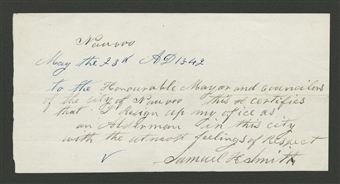 Nauvoo
May the 23d AD 1842
to the Honourable Mayor and Councilors
of the City of Nauvoo This is certifies
that I resign up my office as
an Alderman in this city
with the utmost feelings of Respect
Samuel H Smith